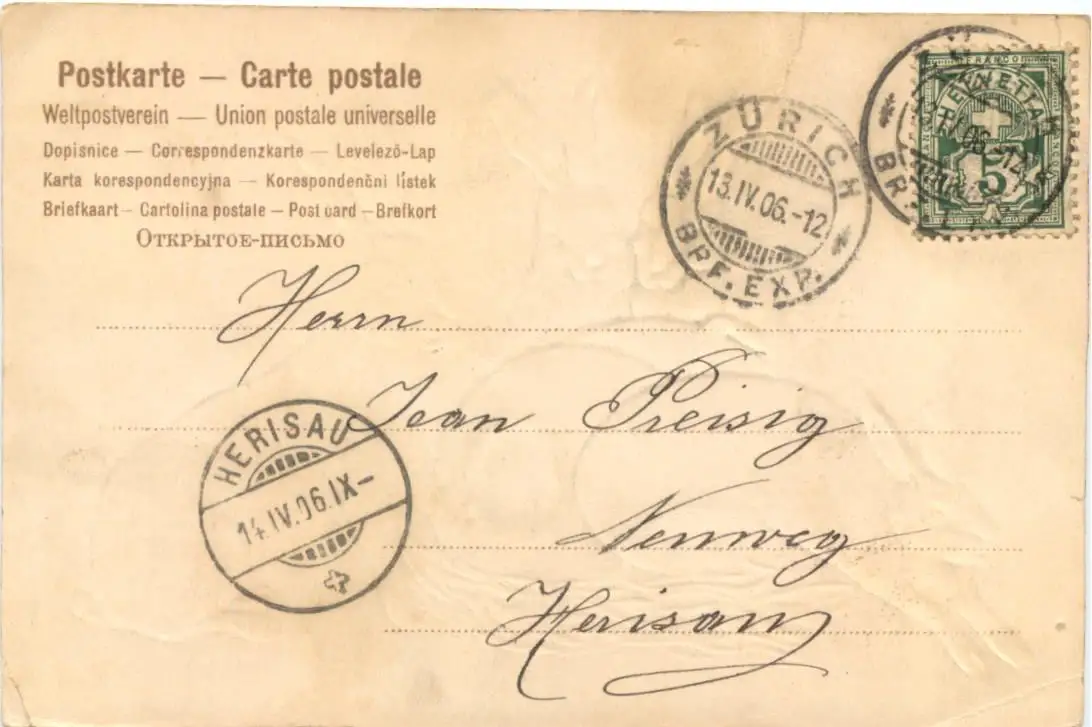 Postkarte — Carte postale
Weltpostverein — Union postale universelle
Dopisnice — Correspondenzkarte — Levelező-Lap
Karta korespondencyjna — Korespondenčni listek
Briefkaart — Cartolina postale — Post card — Brefkort
Открытое-письмо
ZÜRICH
13.IV.06.-12
BRF. EXP.
HELVETIA
FRANCO
5
Herrn
Jean Preisig
Neuweg
Herisau
HERISAU
14.IV.06.IX—